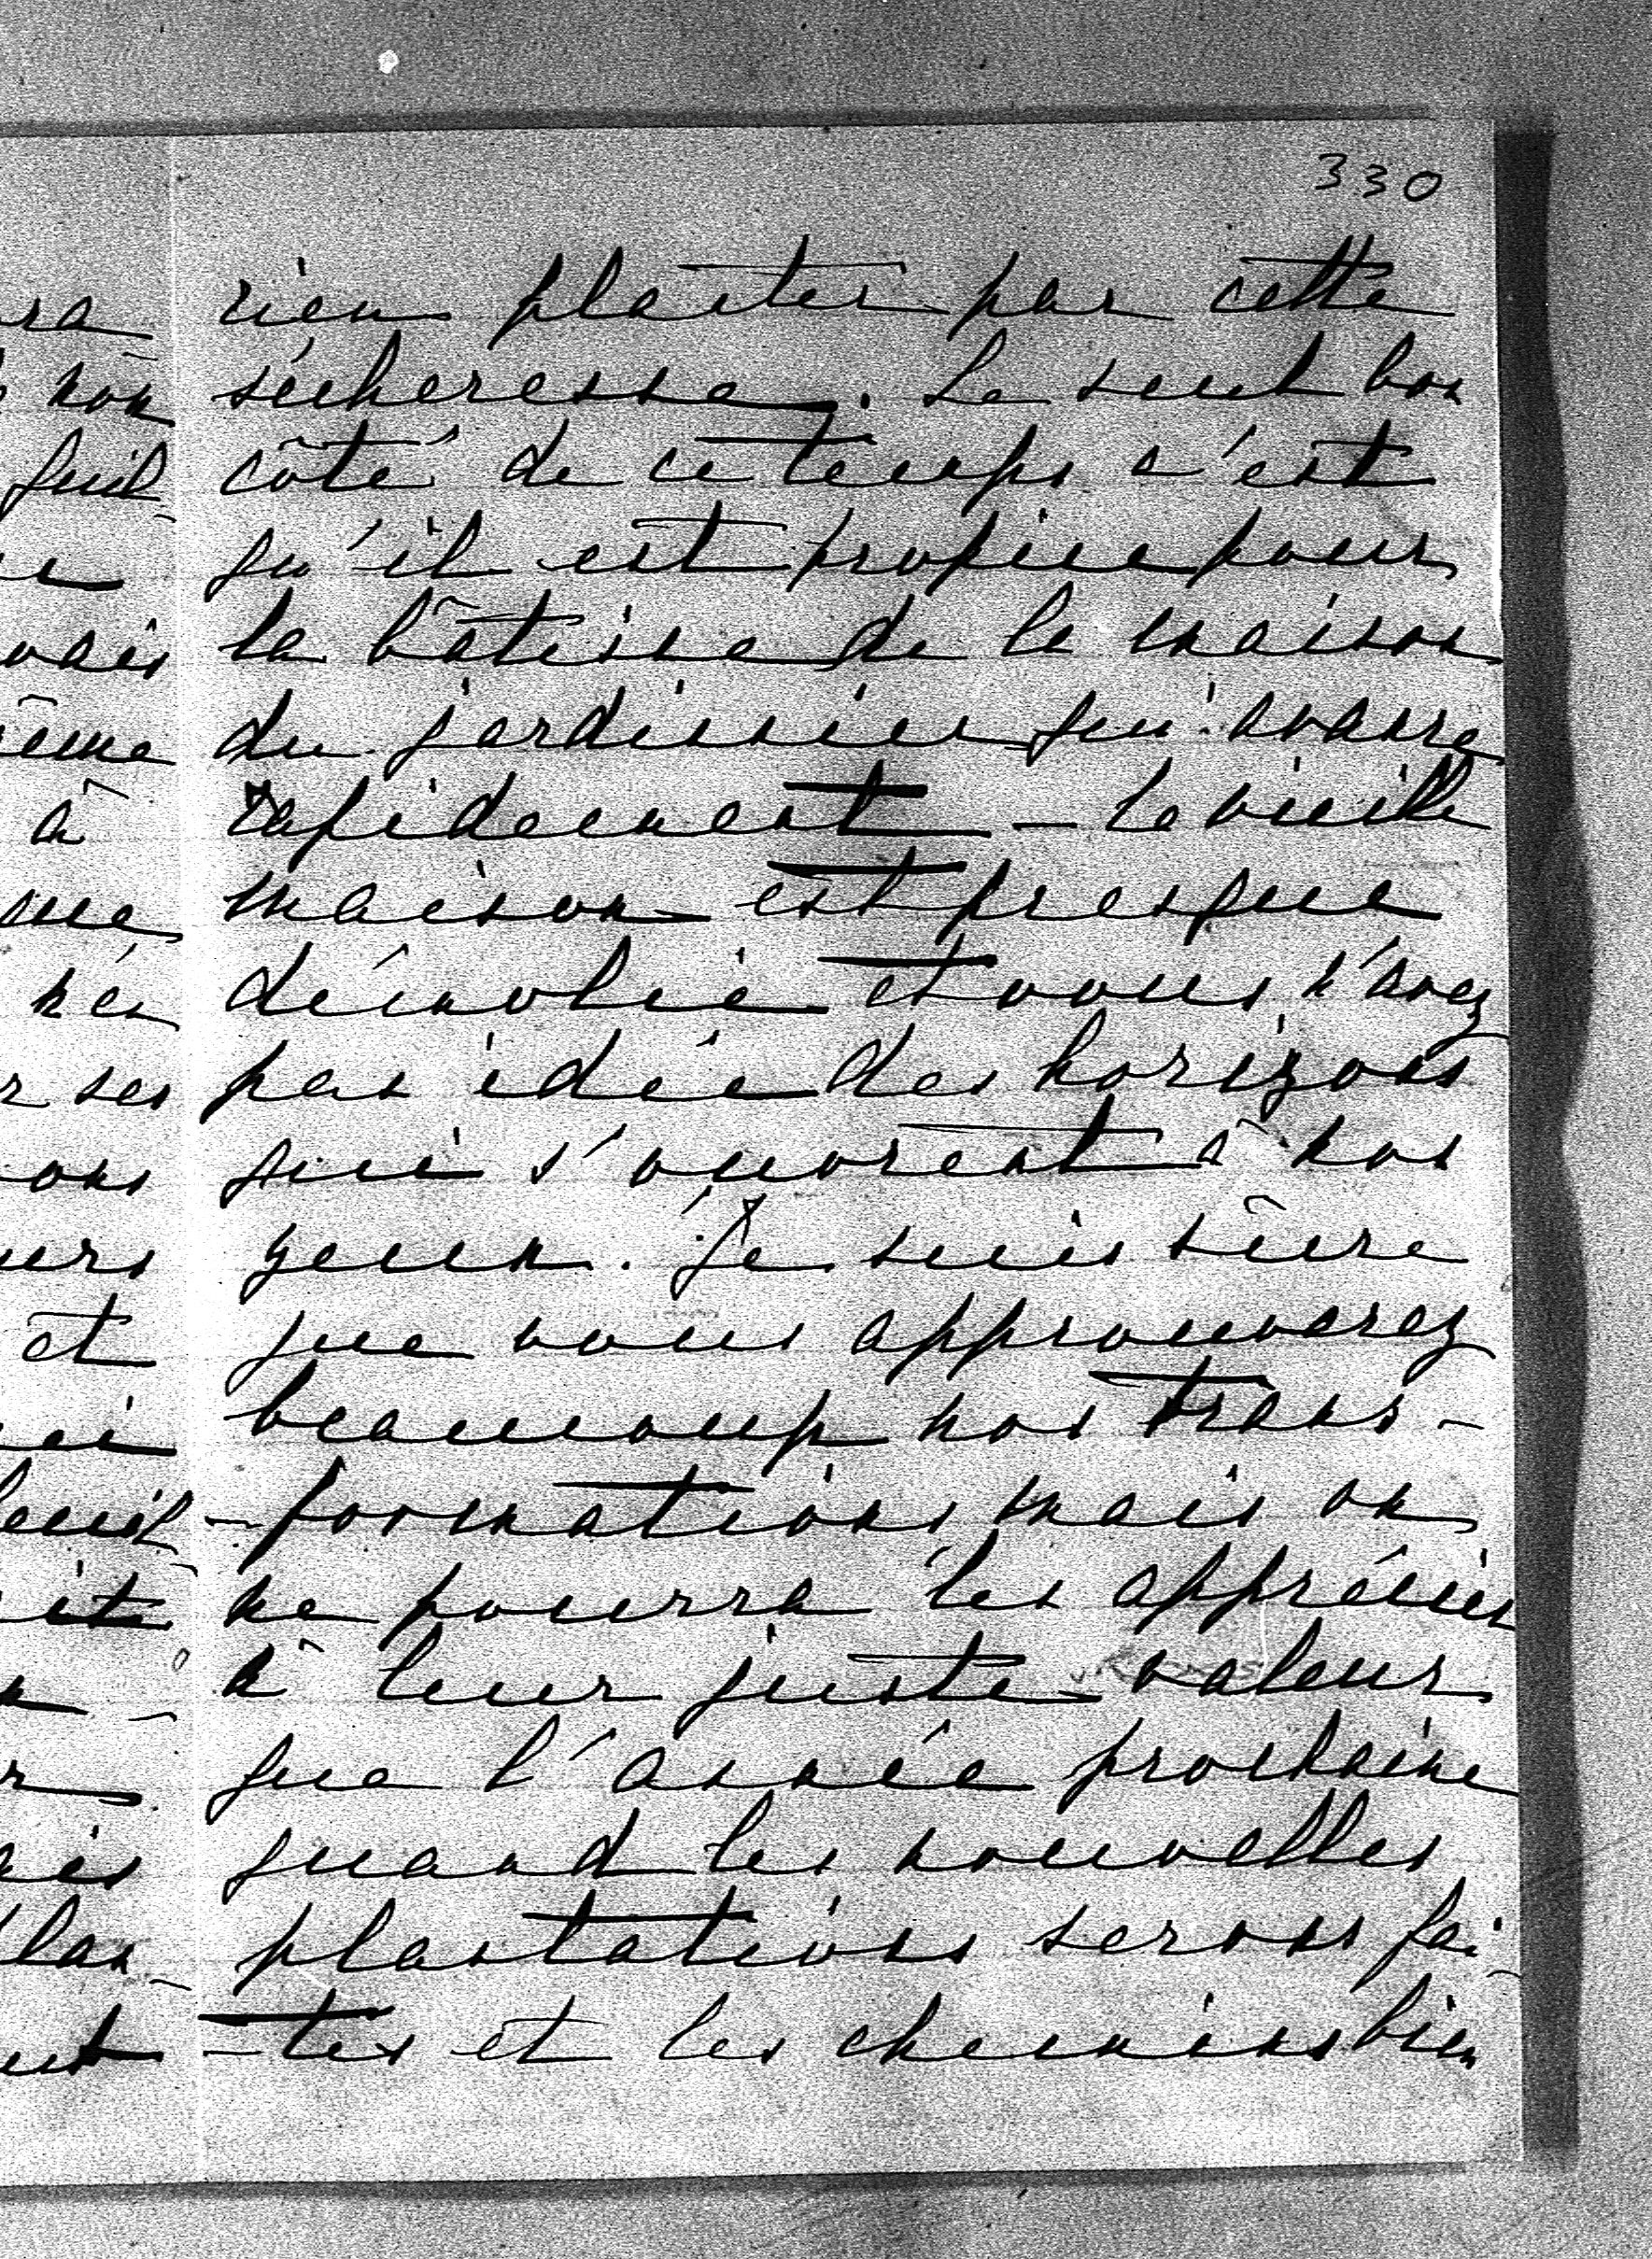 330
rien planter par cette
sécheresse. Le seul bon
côté de ce temps c'est
qu'il est propice pour
la bâtisse de la maison
du jardinier qui avance
rapidement – La vieille
maison est presque
démolie et vous n'avez
pas idée des horizons
qui s'ouvrent à nos
yeux. Je suis sûre
que vous approuverez
beaucoup nos trans-
-formations mais on
ne pourra les apprécier
à leur juste valeur
que l'année prochaine
quand les nouvelles
plantations serons fai-
-tes et les chemins bien
ra
non
me
vais
ême
à
que
r ses
ons
urs
et